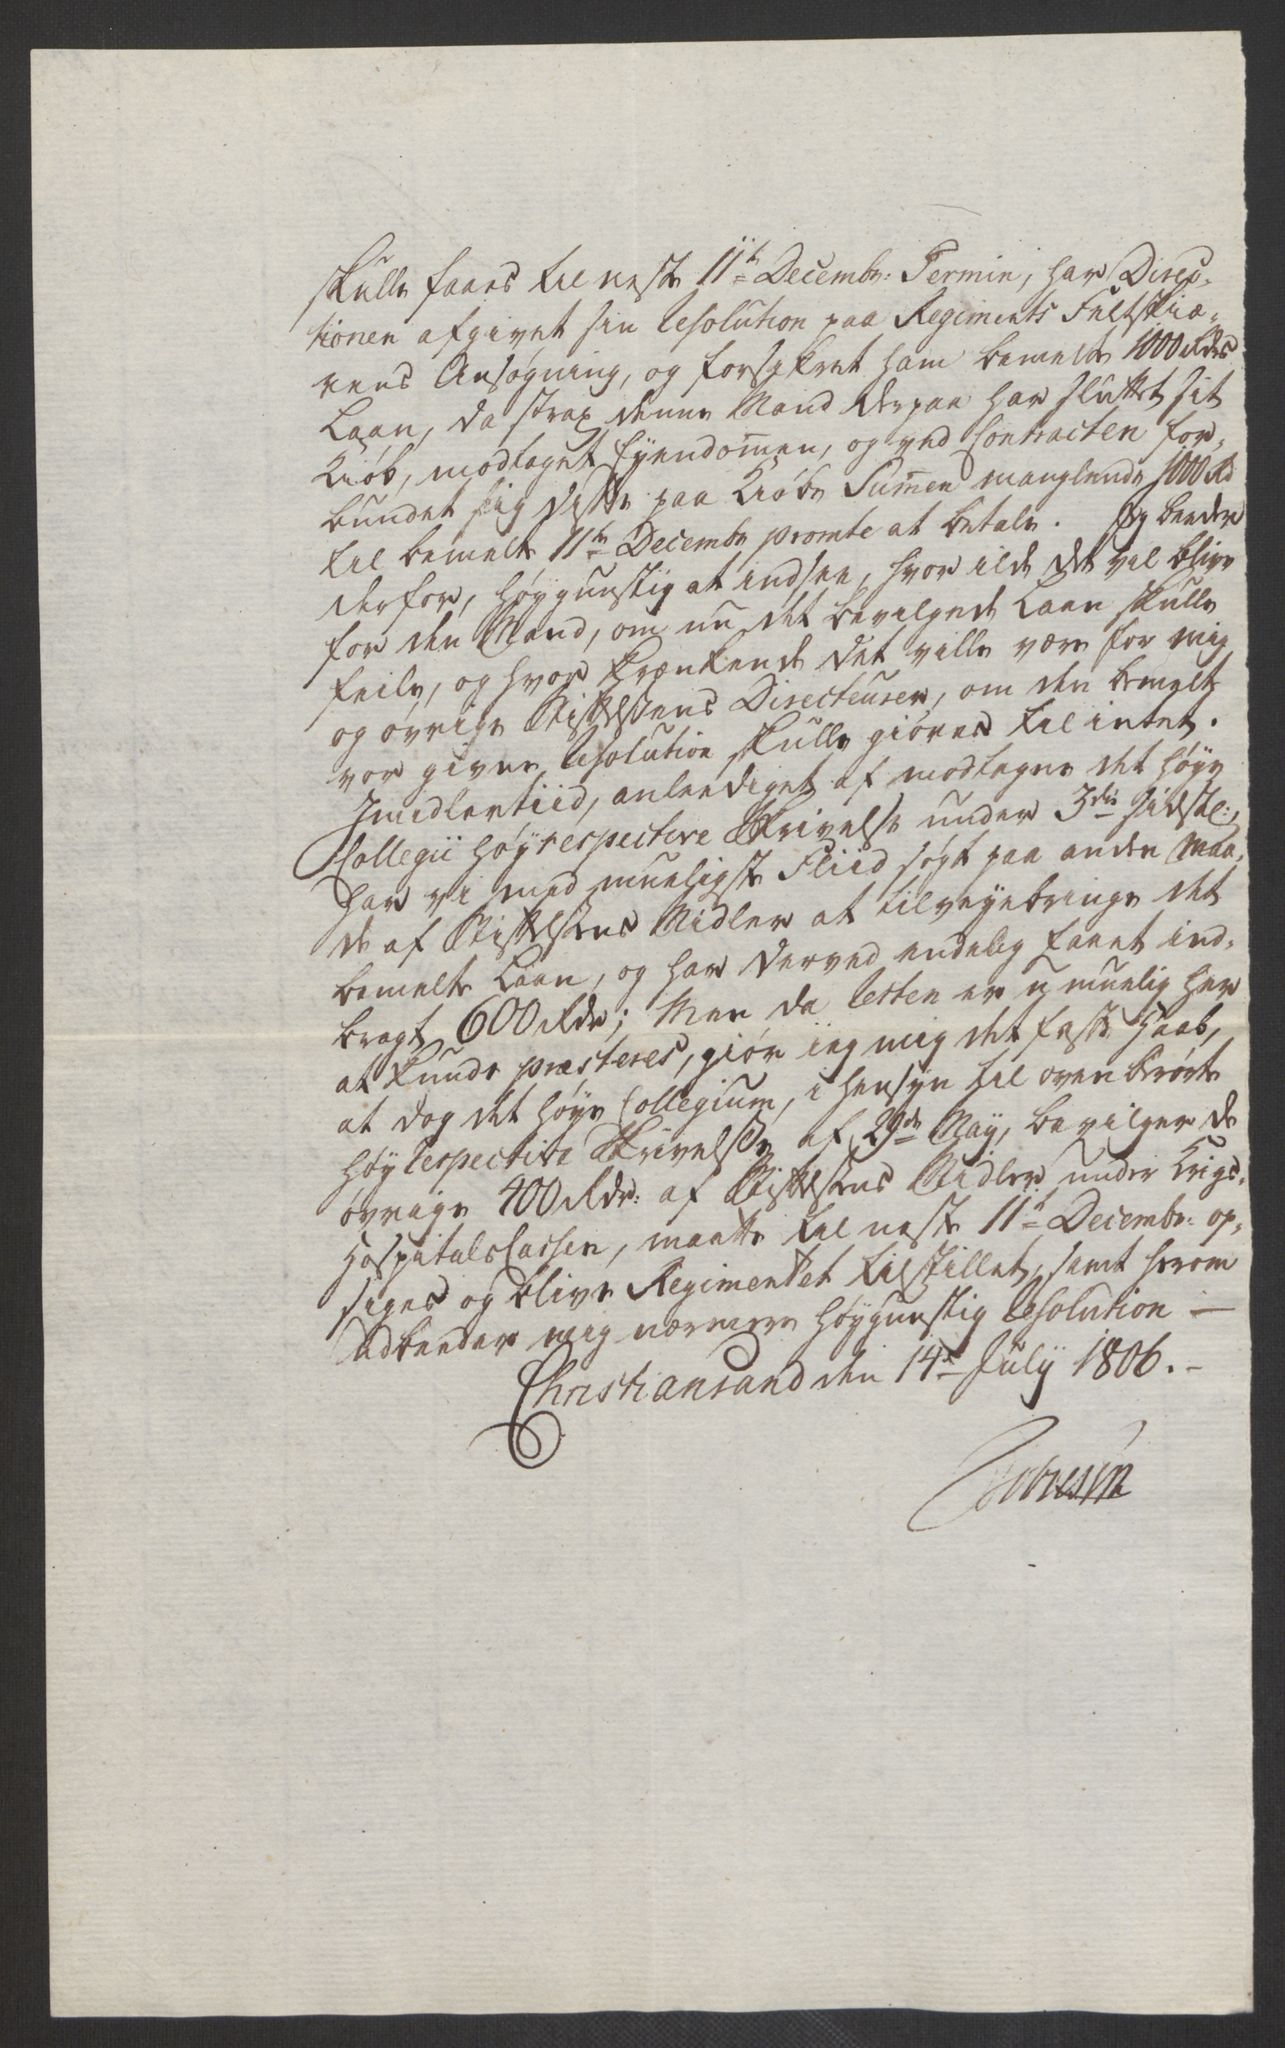 skulle faaes til neste 11te Decembr: Termin, har Direc-
tionen afgivet sin Resolution paa Regiments Feltskiæ-
rens Ansøgning, og forsikret ham bemelte 1000 Rdrs
Laan, da strax denne Mand derpaa har sluttet sit
Kiøb, modtaget Eyendom̄en, og ved Contracten for-
bundet sig dette paa Kiøbe Sum̄en manglende 1000 Rd
til bemelte 11te Decembr promte at betale. Jeg beeder
derfor, høygunstig at indsee, hvor ilde det vil blive
for den Mand, om nu det bevilgede Laan skulle
feile, og hvor krænkende det ville være for mig
og øvrige Stiftelsens Directeurer, om den bemelte
vor given Resolution skulle giøres til intet.
Imidlertiid, anleediget af modtagne det høye
Collegii høyrespective Skrivelse under 3die sidstl:,
har vi med mueligste Fliid søgt paa anden Maa-
de af Stiftelsens Midler at tilveyebringe det
bemelte Laan, og har derved endelig faaet ind-
bragt 600 Rdr; Men da Resten er umuelig her
at kunde præsteres, giør ieg mig det faste Haab,
at dog det høye Collegium, i Hensyn til ovenberørte
høyrespective Skrivelse af 29de May, bevilger de
øvrige 400 Rdr: af Stiftelsens Midler under Krigs-
Hospitals Cassen, maatte til neste 11te Decembr: op-
siges og blive Regimentet tilstillet, samt herom
udbeeder mig nærmere høygunstig Resolution —
Christiansand den 14de July 1806. -